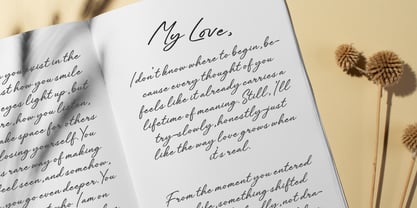 you exist in the
st how you smile
eyes light up, but
e, how you listen,
ake space for others
losing yourself. You
s rare way of making
feel seen, and somehow,
you go even deeper. You
t who I am on
My Love,
I don't know where to begin, be-
cause every thought of you
feels like it already carries a
lifetime of meaning. Still, I'll
try—slowly, honestly—just
like the way love grows when
it's real.
From the moment you entered
life, something shifted
ally, not dra-